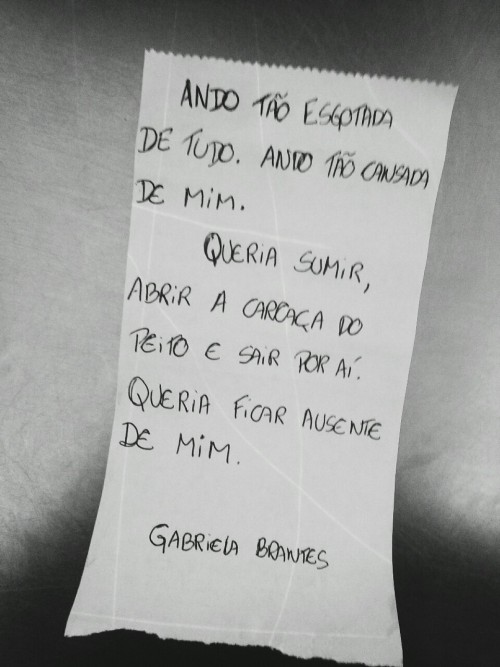 ANDO TÃO ESGOTADA
DE TUDO. ANDO TÃO CANSADA
DE MIM.
QUERIA SUMIR,
ABRIR A CARCAÇA DO
PEITO E SAIR POR AÍ.
QUERIA FICAR AUSENTE
DE MIM.
GABRIELA BRANTES